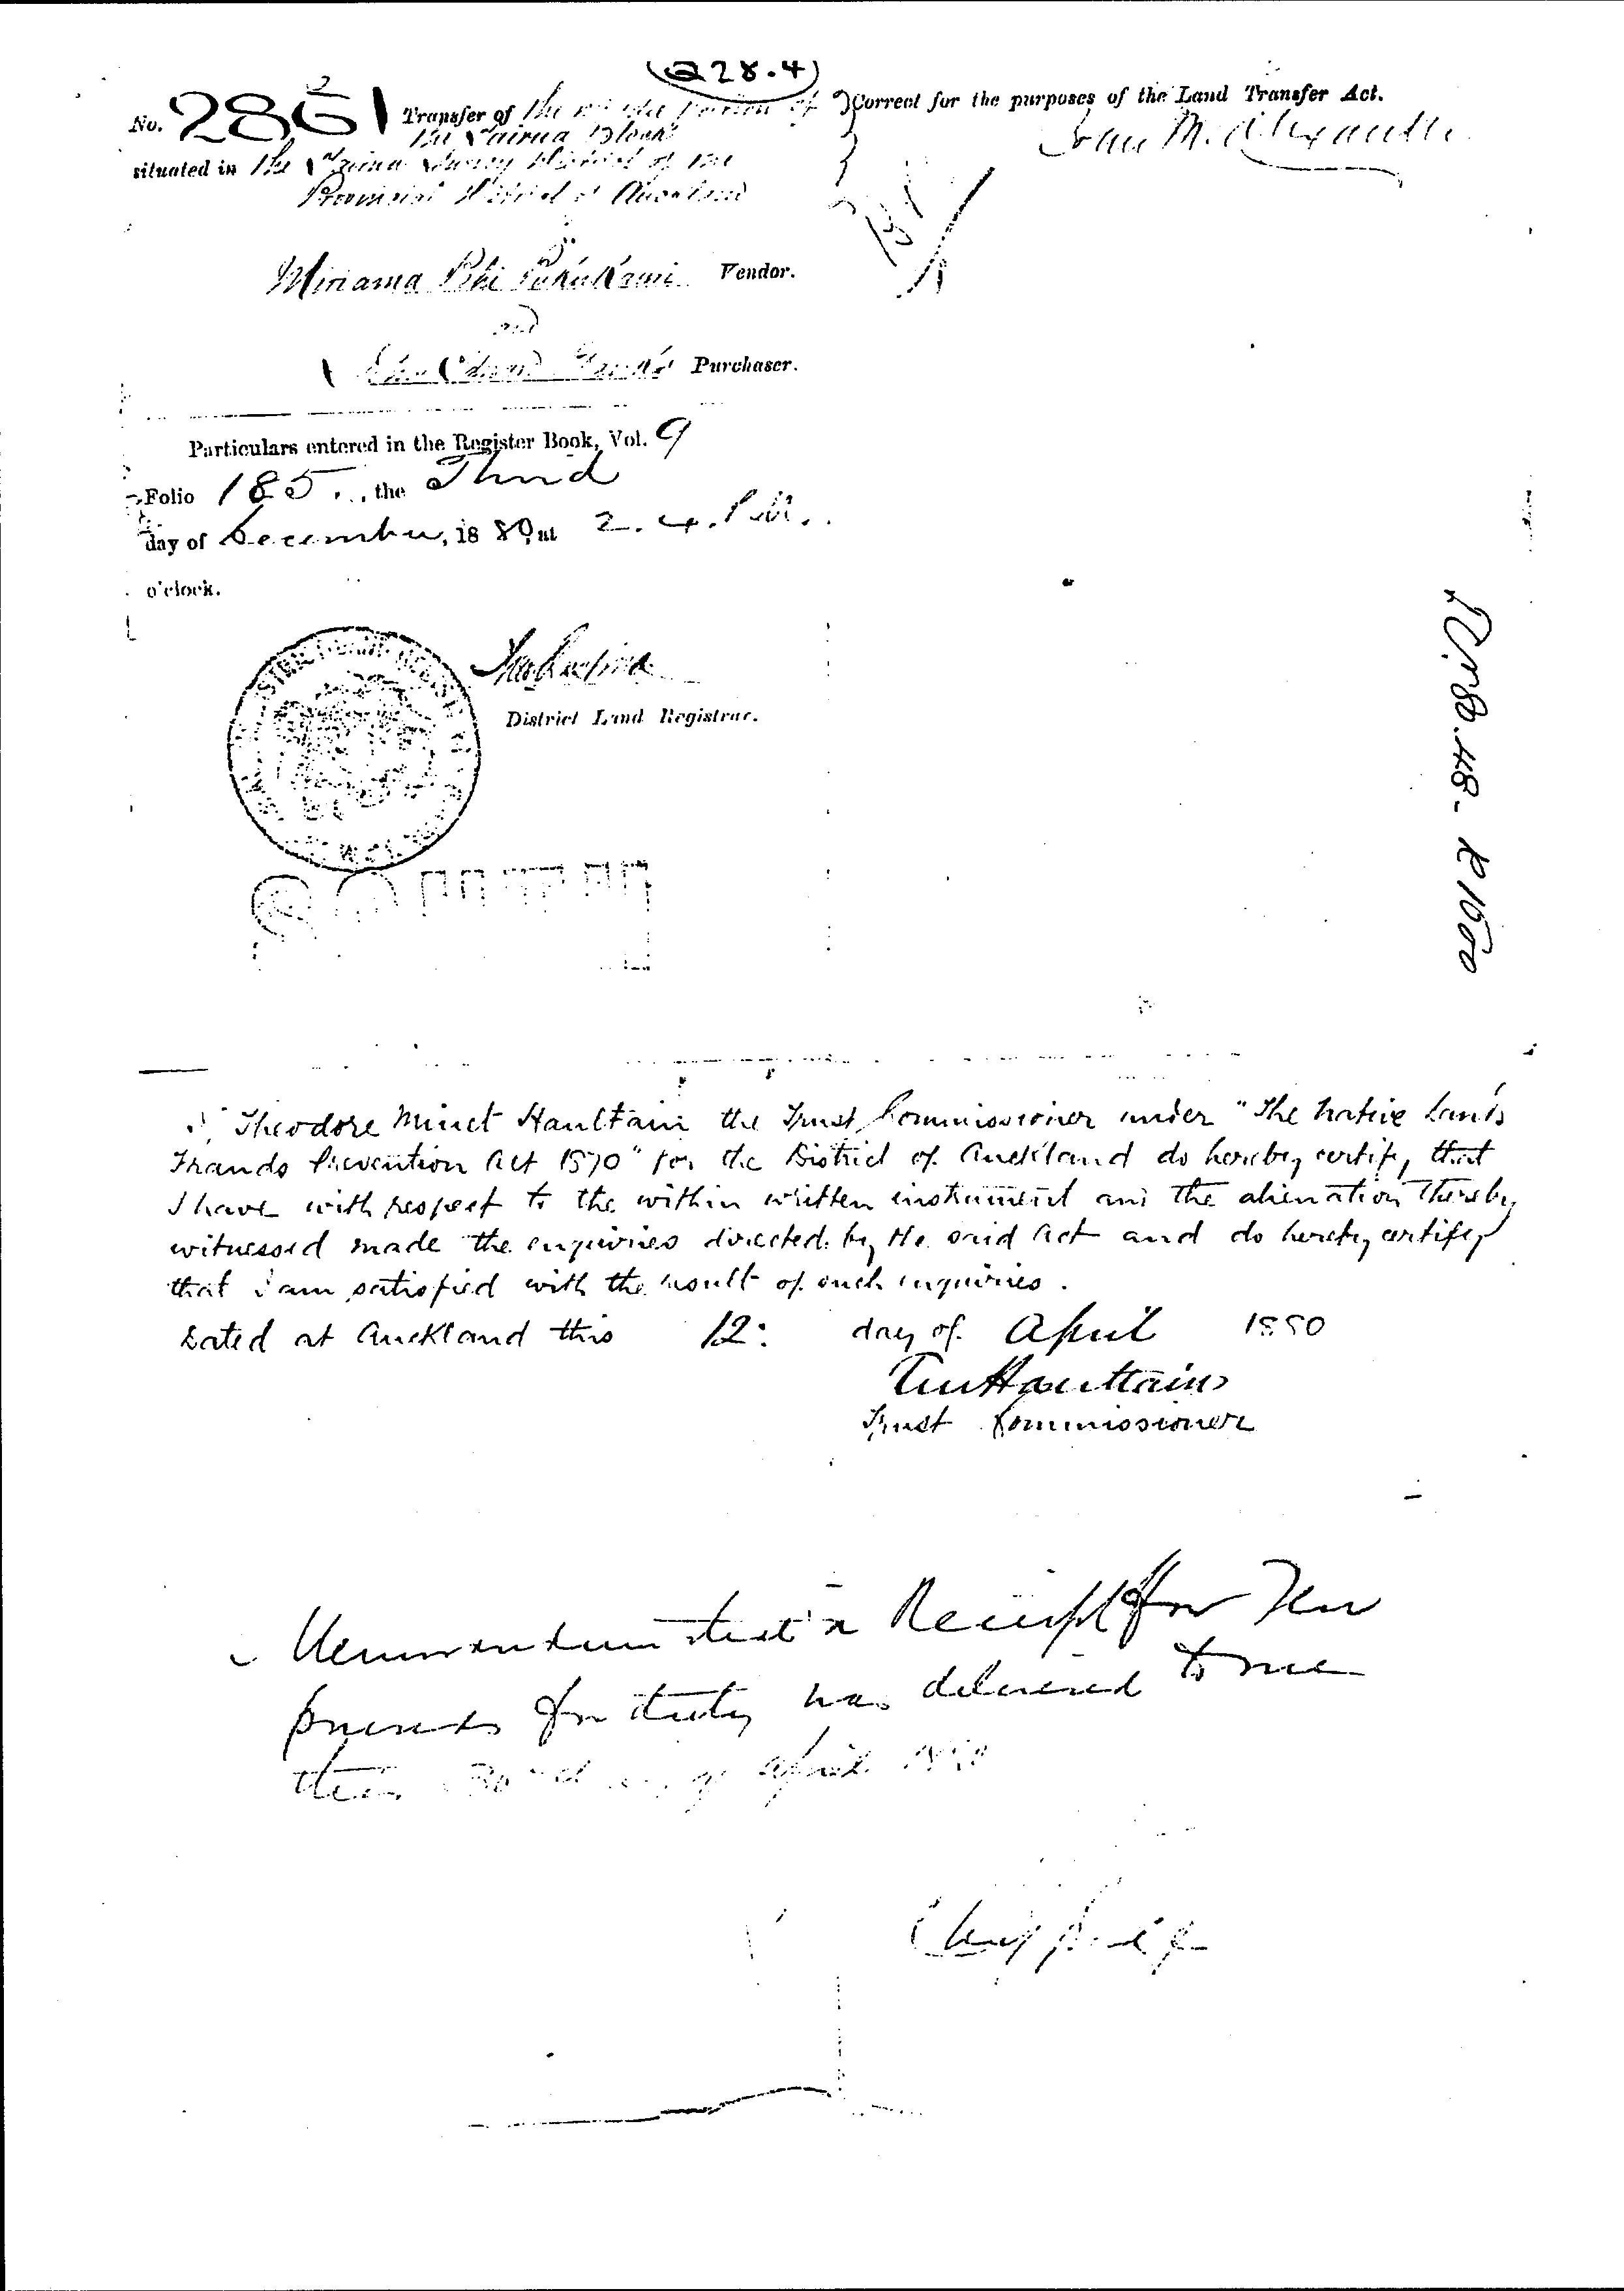 (Q 28.4)
No. 2861 Transfer of the portion of
the Tairua Block
situated in the Tairua Survey District of the
Provincial District of Auckland
Correct for the purposes of the Land Transfer Act.
John M. Alexander
Miriama Vendor.
and
Purchaser.
Particulars entered in the Register Book, Vol. 9
Folio 185 the Third
day of December, 1880 at 2.4. P.M.
o'clock.
District Land Registrar.
I, Theodore Minet Haultain the Trust Commissioner under "The Native Lands
Frauds Prevention Act 1870" for the District of Auckland do hereby certify that
I have with respect to the within written instrument and the alienation thereby
witnessed made the enquiries directed by the said Act and do hereby certify
that I am satisfied with the result of such inquiries.
Dated at Auckland this 12: day of April 1880
TM Haultain
Trust Commissioner
Memorandum that a Receipt for Ten
pounds for duty was delivered to me
this day of April